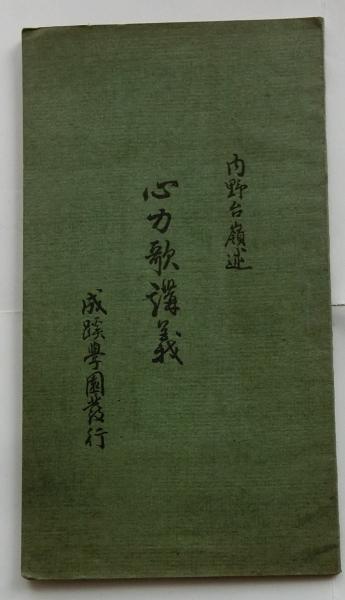 内野台嶺述
心力歌講義
成蹊學園發行